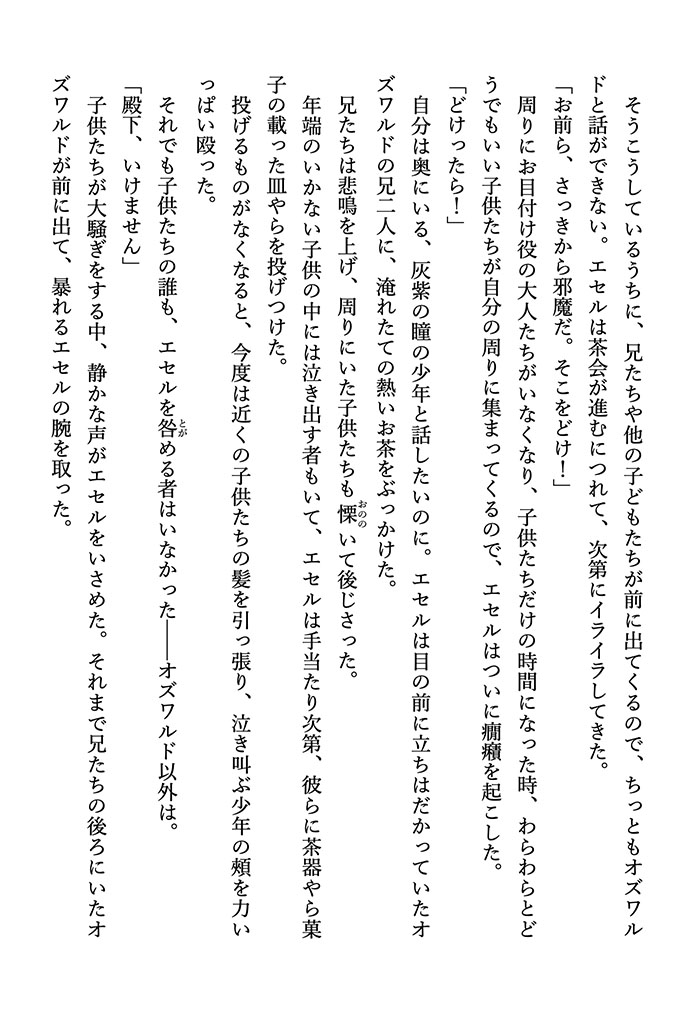 そうこうしているうちに、兄たちや他の子どもたちが前に出てくるので、ちっともオズワル
ドと話ができない。エセルは茶会が進むにつれて、次第にイライラしてきた。
「お前ら、さっきから邪魔だ。そこをどけ！」
周りにお目付け役の大人たちがいなくなり、子供たちだけの時間になった時、わらわらとど
うでもいい子供たちが自分の周りに集まってくるので、エセルはついに癇癪を起こした。
「どけったら！」
自分は奥にいる、灰紫の瞳の少年と話したいのに。エセルは目の前に立ちはだかっていたオ
ズワルドの兄二人に、淹れたての熱いお茶をぶっかけた。
兄たちは悲鳴を上げ、周りにいた子供たちも慄いて後じさった。
年端のいかない子供の中には泣き出す者もいて、エセルは手当たり次第、彼らに茶器やら菓
子の載った皿やらを投げつけた。
投げるものがなくなると、今度は近くの子供たちの髪を引っ張り、泣き叫ぶ少年の頰を力い
っぱい殴った。
それでも子供たちの誰も、エセルを咎める者はいなかった――オズワルド以外は。
「殿下、いけません」
子供たちが大騒ぎをする中、静かな声がエセルをいさめた。それまで兄たちの後ろにいたオ
ズワルドが前に出て、暴れるエセルの腕を取った。